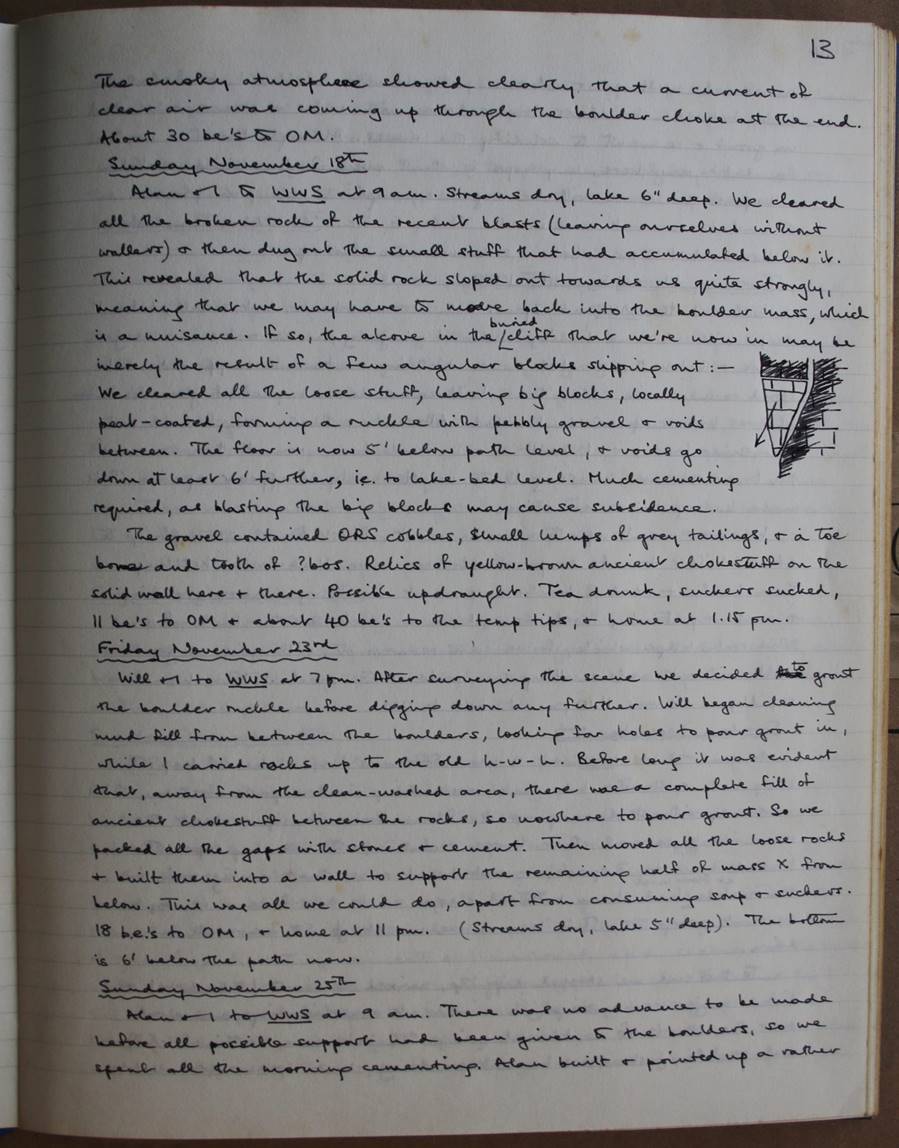 13
The smoky atmosphere showed clearly that a current of
clear air was coming up through the boulder choke at the end.
About 30 be's to OM.
Sunday November 18th
Alan + I to WWS at 9 am. Streams dry, lake 6" deep. We cleared
all the broken rock of the recent blasts (leaving ourselves without
wallers) + then dug out the small stuff that had accumulated below it.
This revealed that the solid rock sloped out towards us quite strongly,
meaning that we may have to move back into the boulder mass, which
is a nuisance. If so, the alcove in the buried cliff that we're now in may be
merely the result of a few angular blocks slipping out :—
We cleared all the loose stuff, leaving big blocks, locally
peat-coated, forming a ruckle with pebbly gravel + voids
between. The floor is now 5' below path level, + voids go
down at least 6' further, ie. to lake-bed level. Much cementing
required, as blasting the big blocks may cause subsidence.
The gravel contained ORS cobbles, small lumps of grey tailings, + a toe
bone and tooth of ?bos. Relics of yellow-brown ancient chokestuff on the
solid wall here + there. Possible updraught. Tea drunk, suckers sucked,
11 be's to OM + about 40 be's to the temp tips, + home at 1.15 pm.
Friday November 23rd
Will + I to WWS at 7 pm. After surveying the scene we decided to grout
the boulder ruckle before digging down any further. Will began cleaning
mud fill from between the boulders, looking for holes to pour grout in,
while I carried rocks up to the old h-w-h. Before long it was evident
that, away from the clean-washed area, there was a complete fill of
ancient chokestuff between the rocks, so nowhere to pour grout. So we
packed all the gaps with stones + cement. Then moved all the loose rocks
+ built them into a wall to support the remaining half of mass X from
below. This was all we could do, apart from consuming soup + suckers.
18 be's to OM, + home at 11 pm. (Streams dry, lake 5" deep). The bottom
is 6' below the path now.
Sunday November 25th
Alan + I to WWS at 9 am. There was no advance to be made
before all possible support had been given to the boulders, so we
spent all the morning cementing. Alan built + pointed up a rather